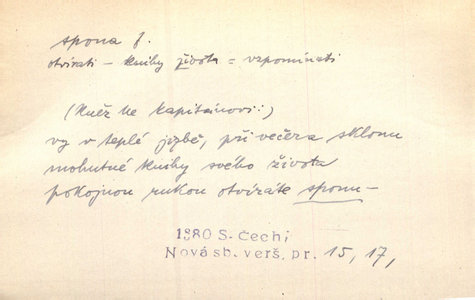 spona f.
otvírati – knihy života = vzpomínati
(Kněz ke kapitánovi:)
vy v teplé jizbě, při večera sklonu
mohutné knihy svého života
pokojnou rukou otvíráte sponu –
1880 S. Čech,
Nová sb. verš. pr. 15, 17,